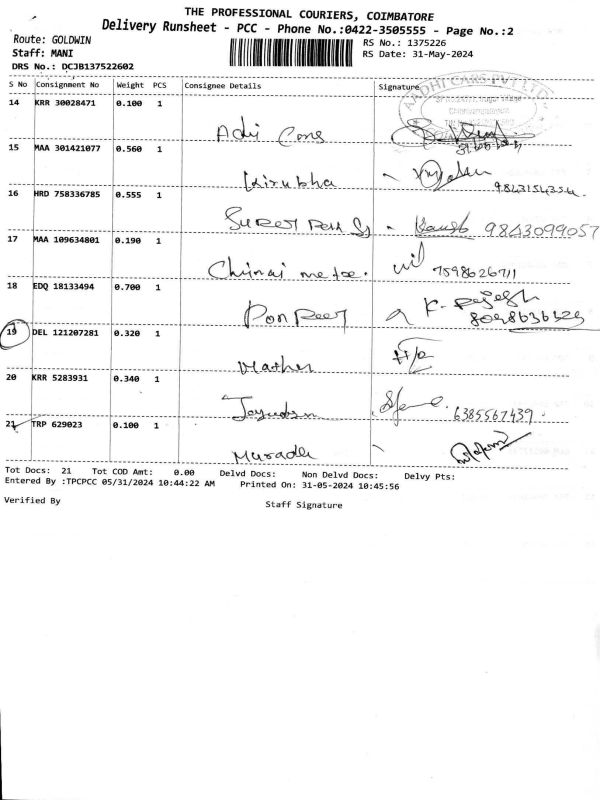 THE PROFESSIONAL COURIERS, COIMBATORE
Delivery Runsheet - PCC - Phone No.:0422-3505555 - Page No.:2
Route: GOLDWIN
RS No.: 1375226
Staff: MANI
RS Date: 31-May-2024
DRS No.: DCJB137522602
S No Consignment No Weight PCS Consignee Details Signature
AADHI CARS PVT LTD
14 KRR 30028471 0.100 1
Adhi Cars
15 MAA 301421077 0.560 1
Kirubha
16 HRD 758336785 0.555 1
9843099057
17 MAA 109634801 0.190 1
7598026711
18 EDQ 18133494 0.700 1
K. Rajesh
19 DEL 121207281 0.320 1
20 KRR 5283931 0.340 1
6385567439
21 TRP 629023 0.100 1
Tot Docs: 21 Tot COD Amt: 0.00 Delvd Docs: Non Delvd Docs: Delvy Pts:
Entered By :TPCPCC 05/31/2024 10:44:22 AM Printed On: 31-05-2024 10:45:56
Verified By
Staff Signature